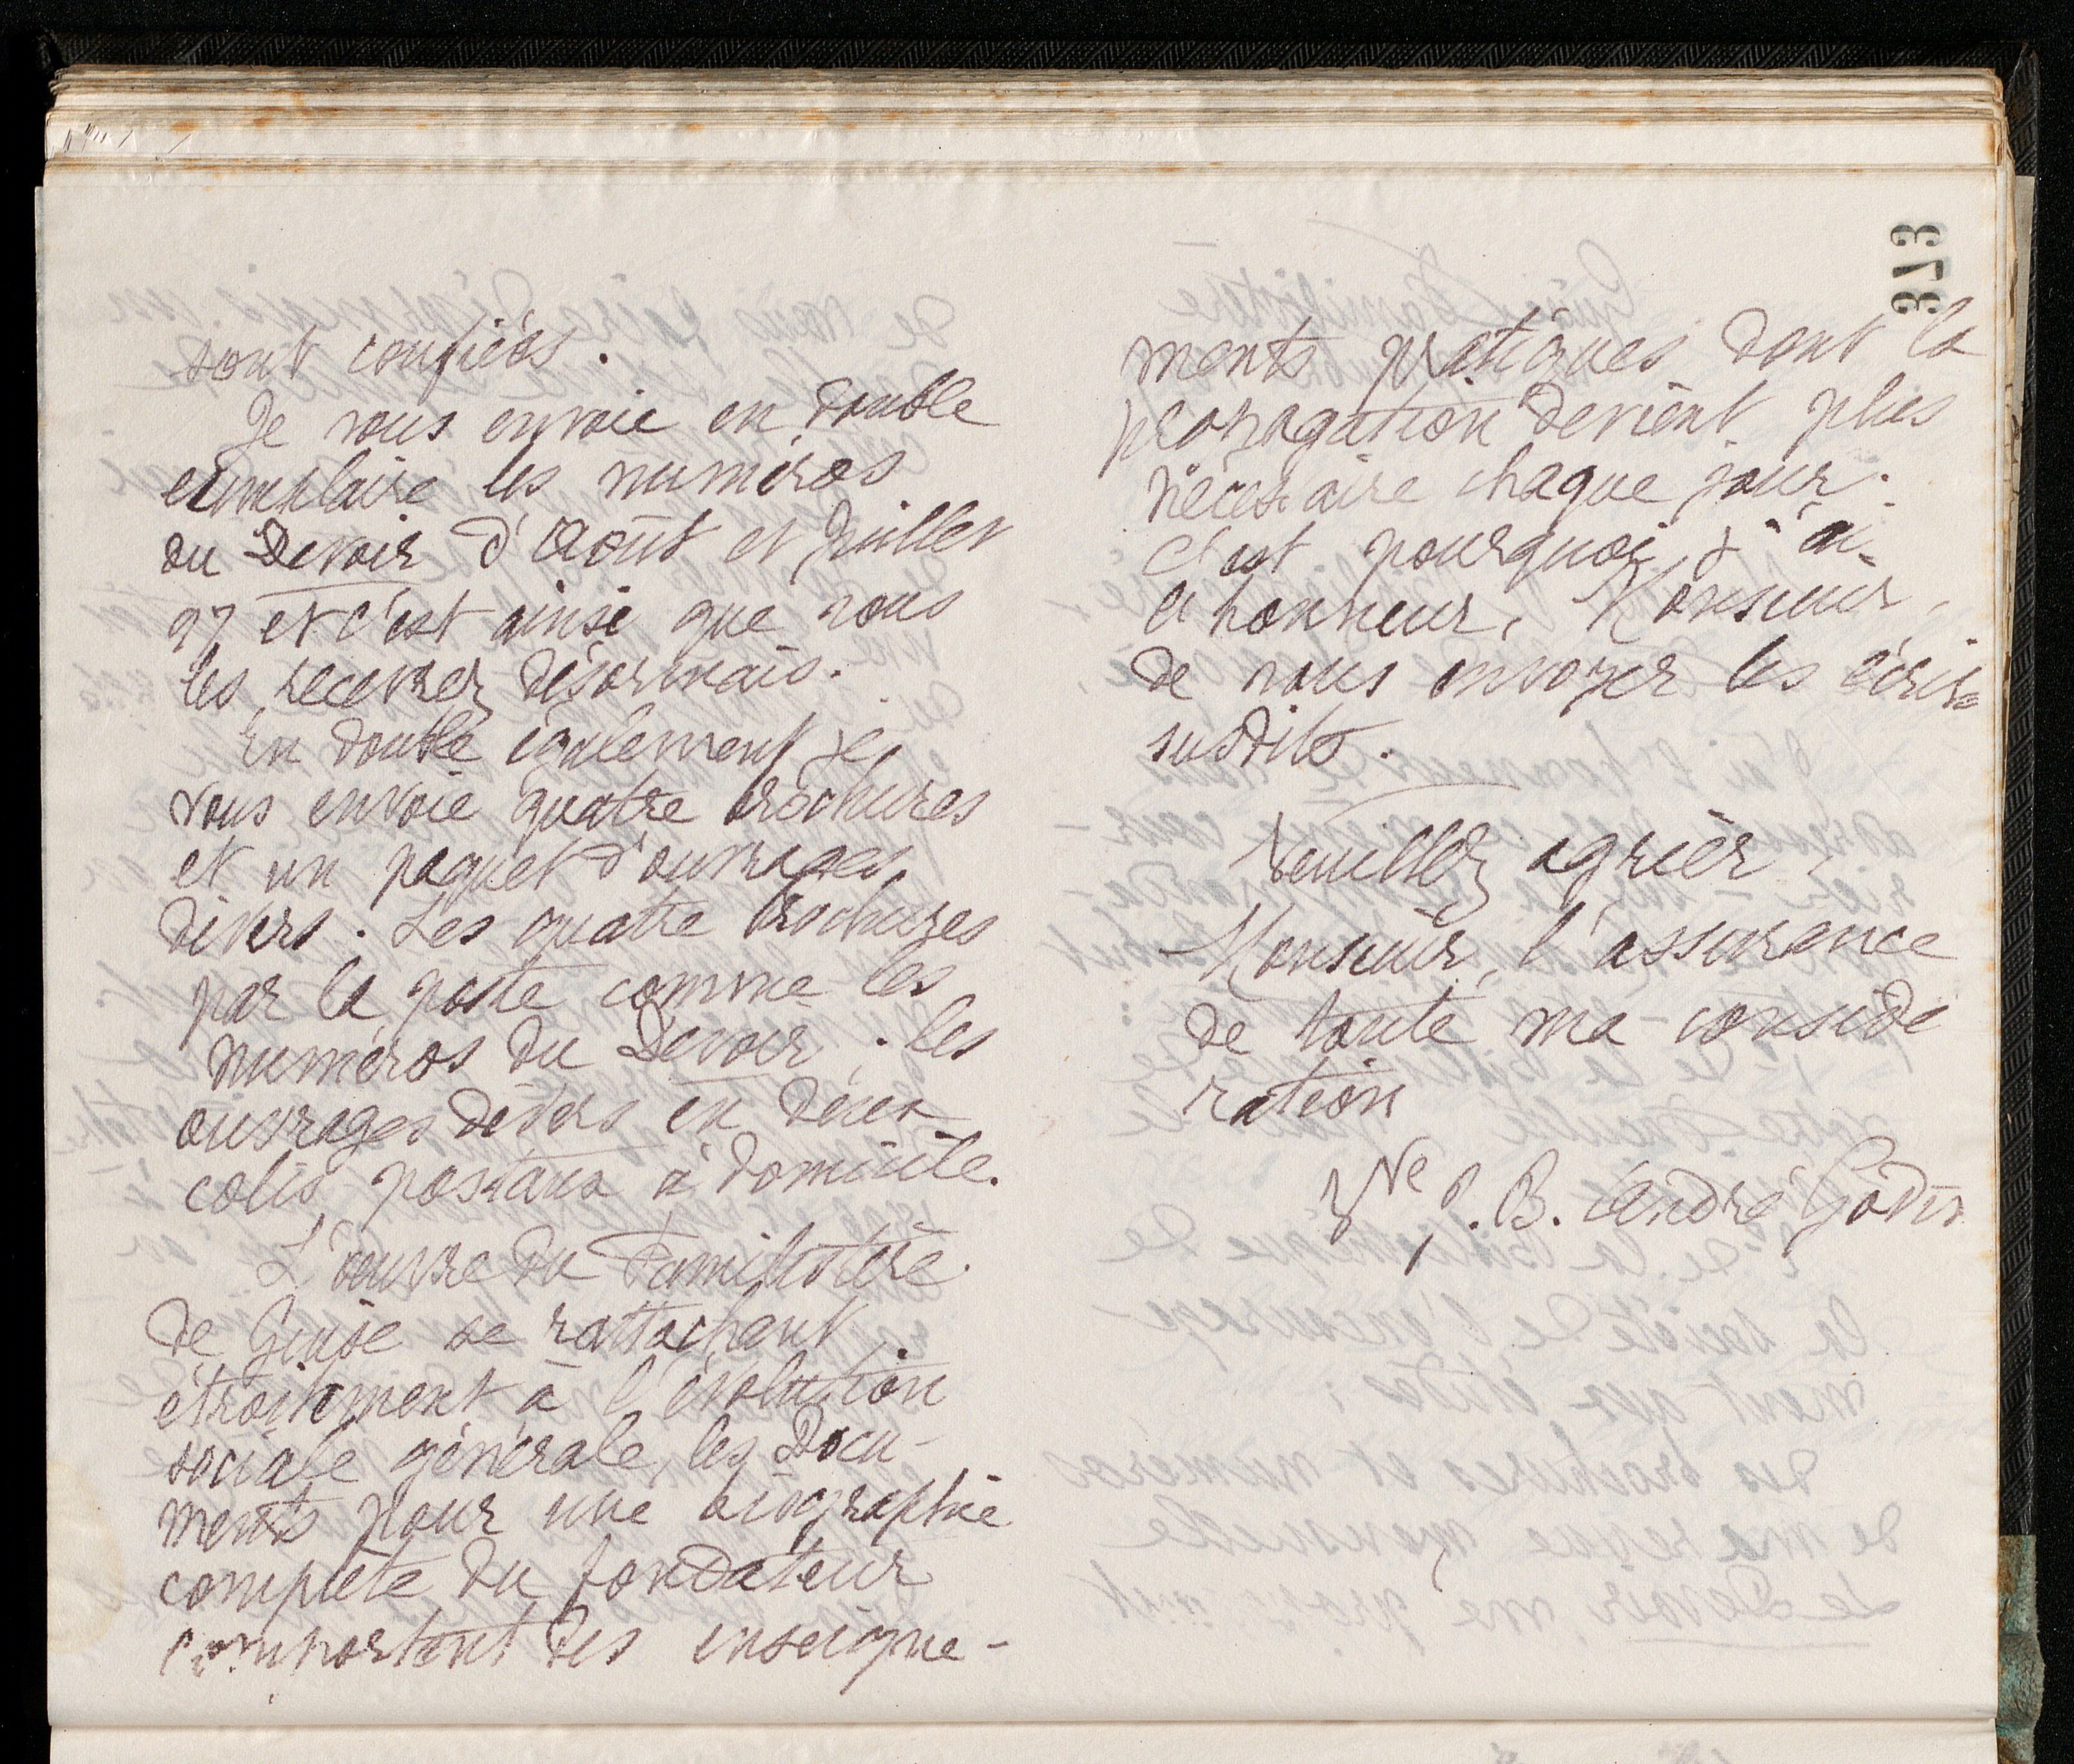 sont confiées.
Je vous envoie en double
exemplaire les numéros
du Devoir d'Août et Juillet
97 et c'est ainsi que vous
les recevrez désormais.
En double également je
vous envoie quatre brochures
et un paquet d'ouvrages
divers. Les quatre brochures
par la poste comme les
numéros du Devoir ; les
ouvrages divers en deux
colis postaux à domicile.
L'œuvre du Familistère
de Guise se rattachant
étroitement à l'évolution
sociale générale, les Docu-
ments pour une biographie
complète du fondateur
comportent des enseigne-
373
ments pratiques dont la
propagation devient plus
nécessaire chaque jour.
C'est pourquoi j'ai
l'honneur, Monsieur,
de vous envoyer les écrits
susdits.
Veuillez agréer,
Monsieur, l'assurance
de toute ma considé
ration
Vve J. B. André Godin